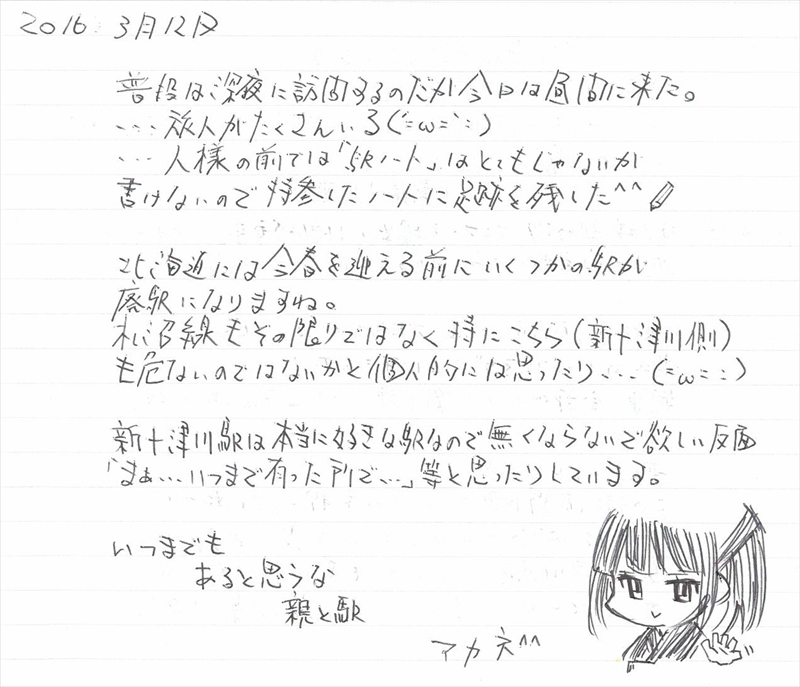 2016 3月12日
普段は深夜に訪問するのだが今日は昼間に来た。
・・・旅人がたくさんいる(´=ω=｀;)
・・・人様の前では「駅ノート」はとてもじゃないが
書けないので持参したノートに足跡を残した^^
北海道には今春を迎える前にいくつかの駅が
廃駅になりますね。
札沼線もその限りではなく特にこちら(新十津川側)
も危ないのではないかと個人的には思ったり・・・(=ω=;)
新十津川駅は本当に好きな駅なので無くならないで欲しい反面
「まぁ・・・いつまで有った所で・・・」等と思ったりしています。
いつまでも
あると思うな
親と駅
アカネ^^